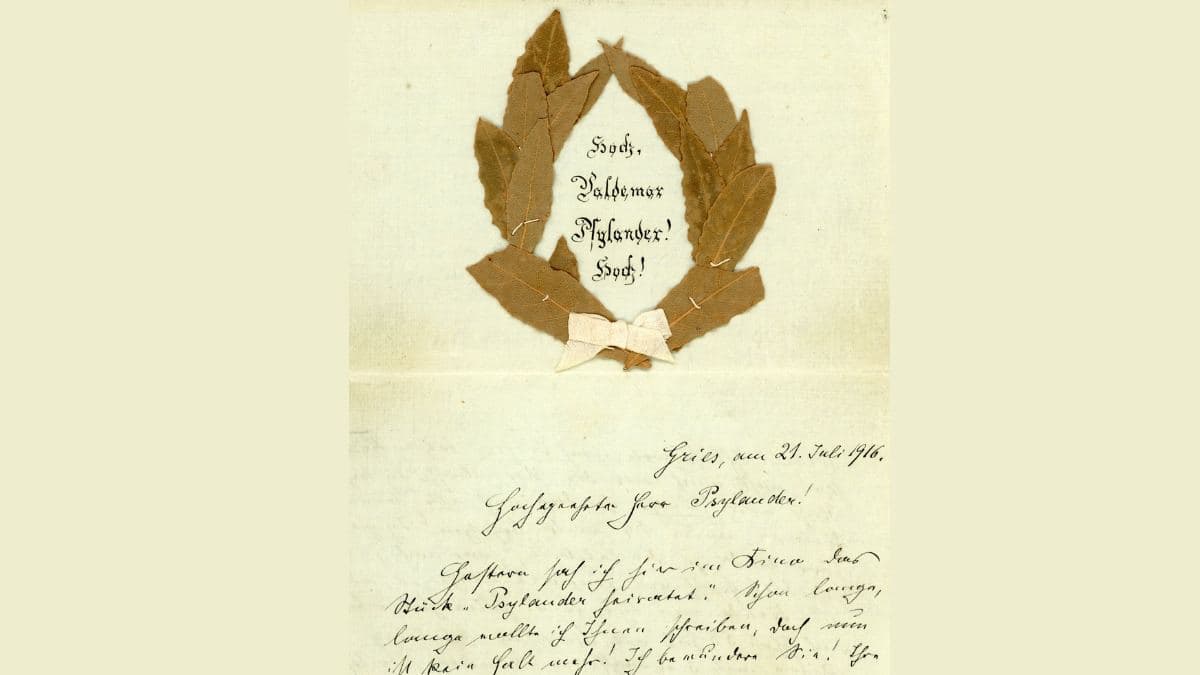 Hoch,
Valdemar
Psylander!
Hoch!
Gries, am 21. Juli 1916.
Hochgeehrter Herr Psylander!
Gestern sah ich hier im Kino das
Stück „Psylander heiratet“. Schon lange,
lange wollte ich Ihnen schreiben, doch nun
ist kein Halt mehr! Ich bewundere Sie! Ihre